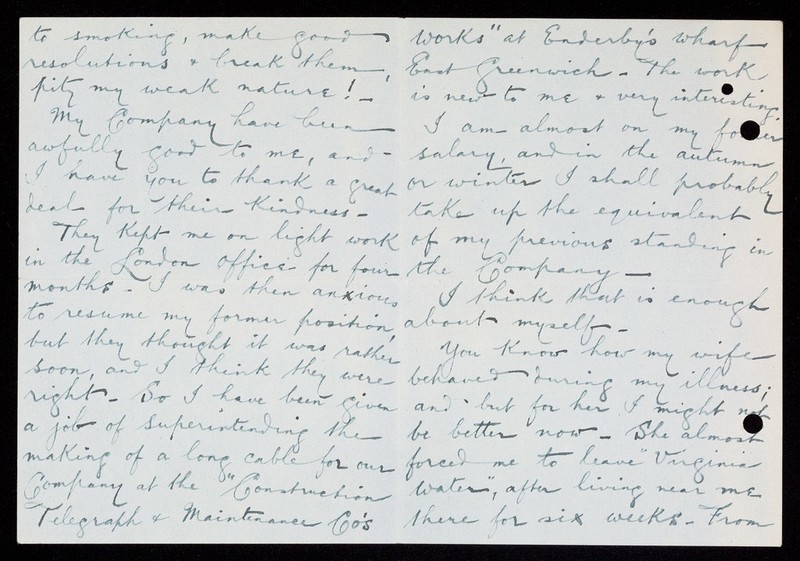 to smoking, make good
resolutions & break them,
pity my weak nature! -
My Company have been
awfully good to me, and
I have you to thank a great
deal for their kindness -
They kept me on light work
in the London office for four
months - I was then anxious
to resume my former position,
but they thought it was rather
soon, and I think they were
right - So I have been given
a job of superintending the
making of a long cable for our
Company at the "Construction
Telegraph & Maintenance Co's
works" at Enderby's wharf
East Greenwich - The work
is new to me & very interesting.
I am almost on my former
salary, and in the autumn
or winter I shall probably
take up the equivalent
of my previous standing in
the Company -
I think that is enough
about myself -
You know how my wife
behaved during my illness;
and but for her I might not
be better now - She almost
forced me to leave "Virginia
Water", after living near me
there for six weeks - From